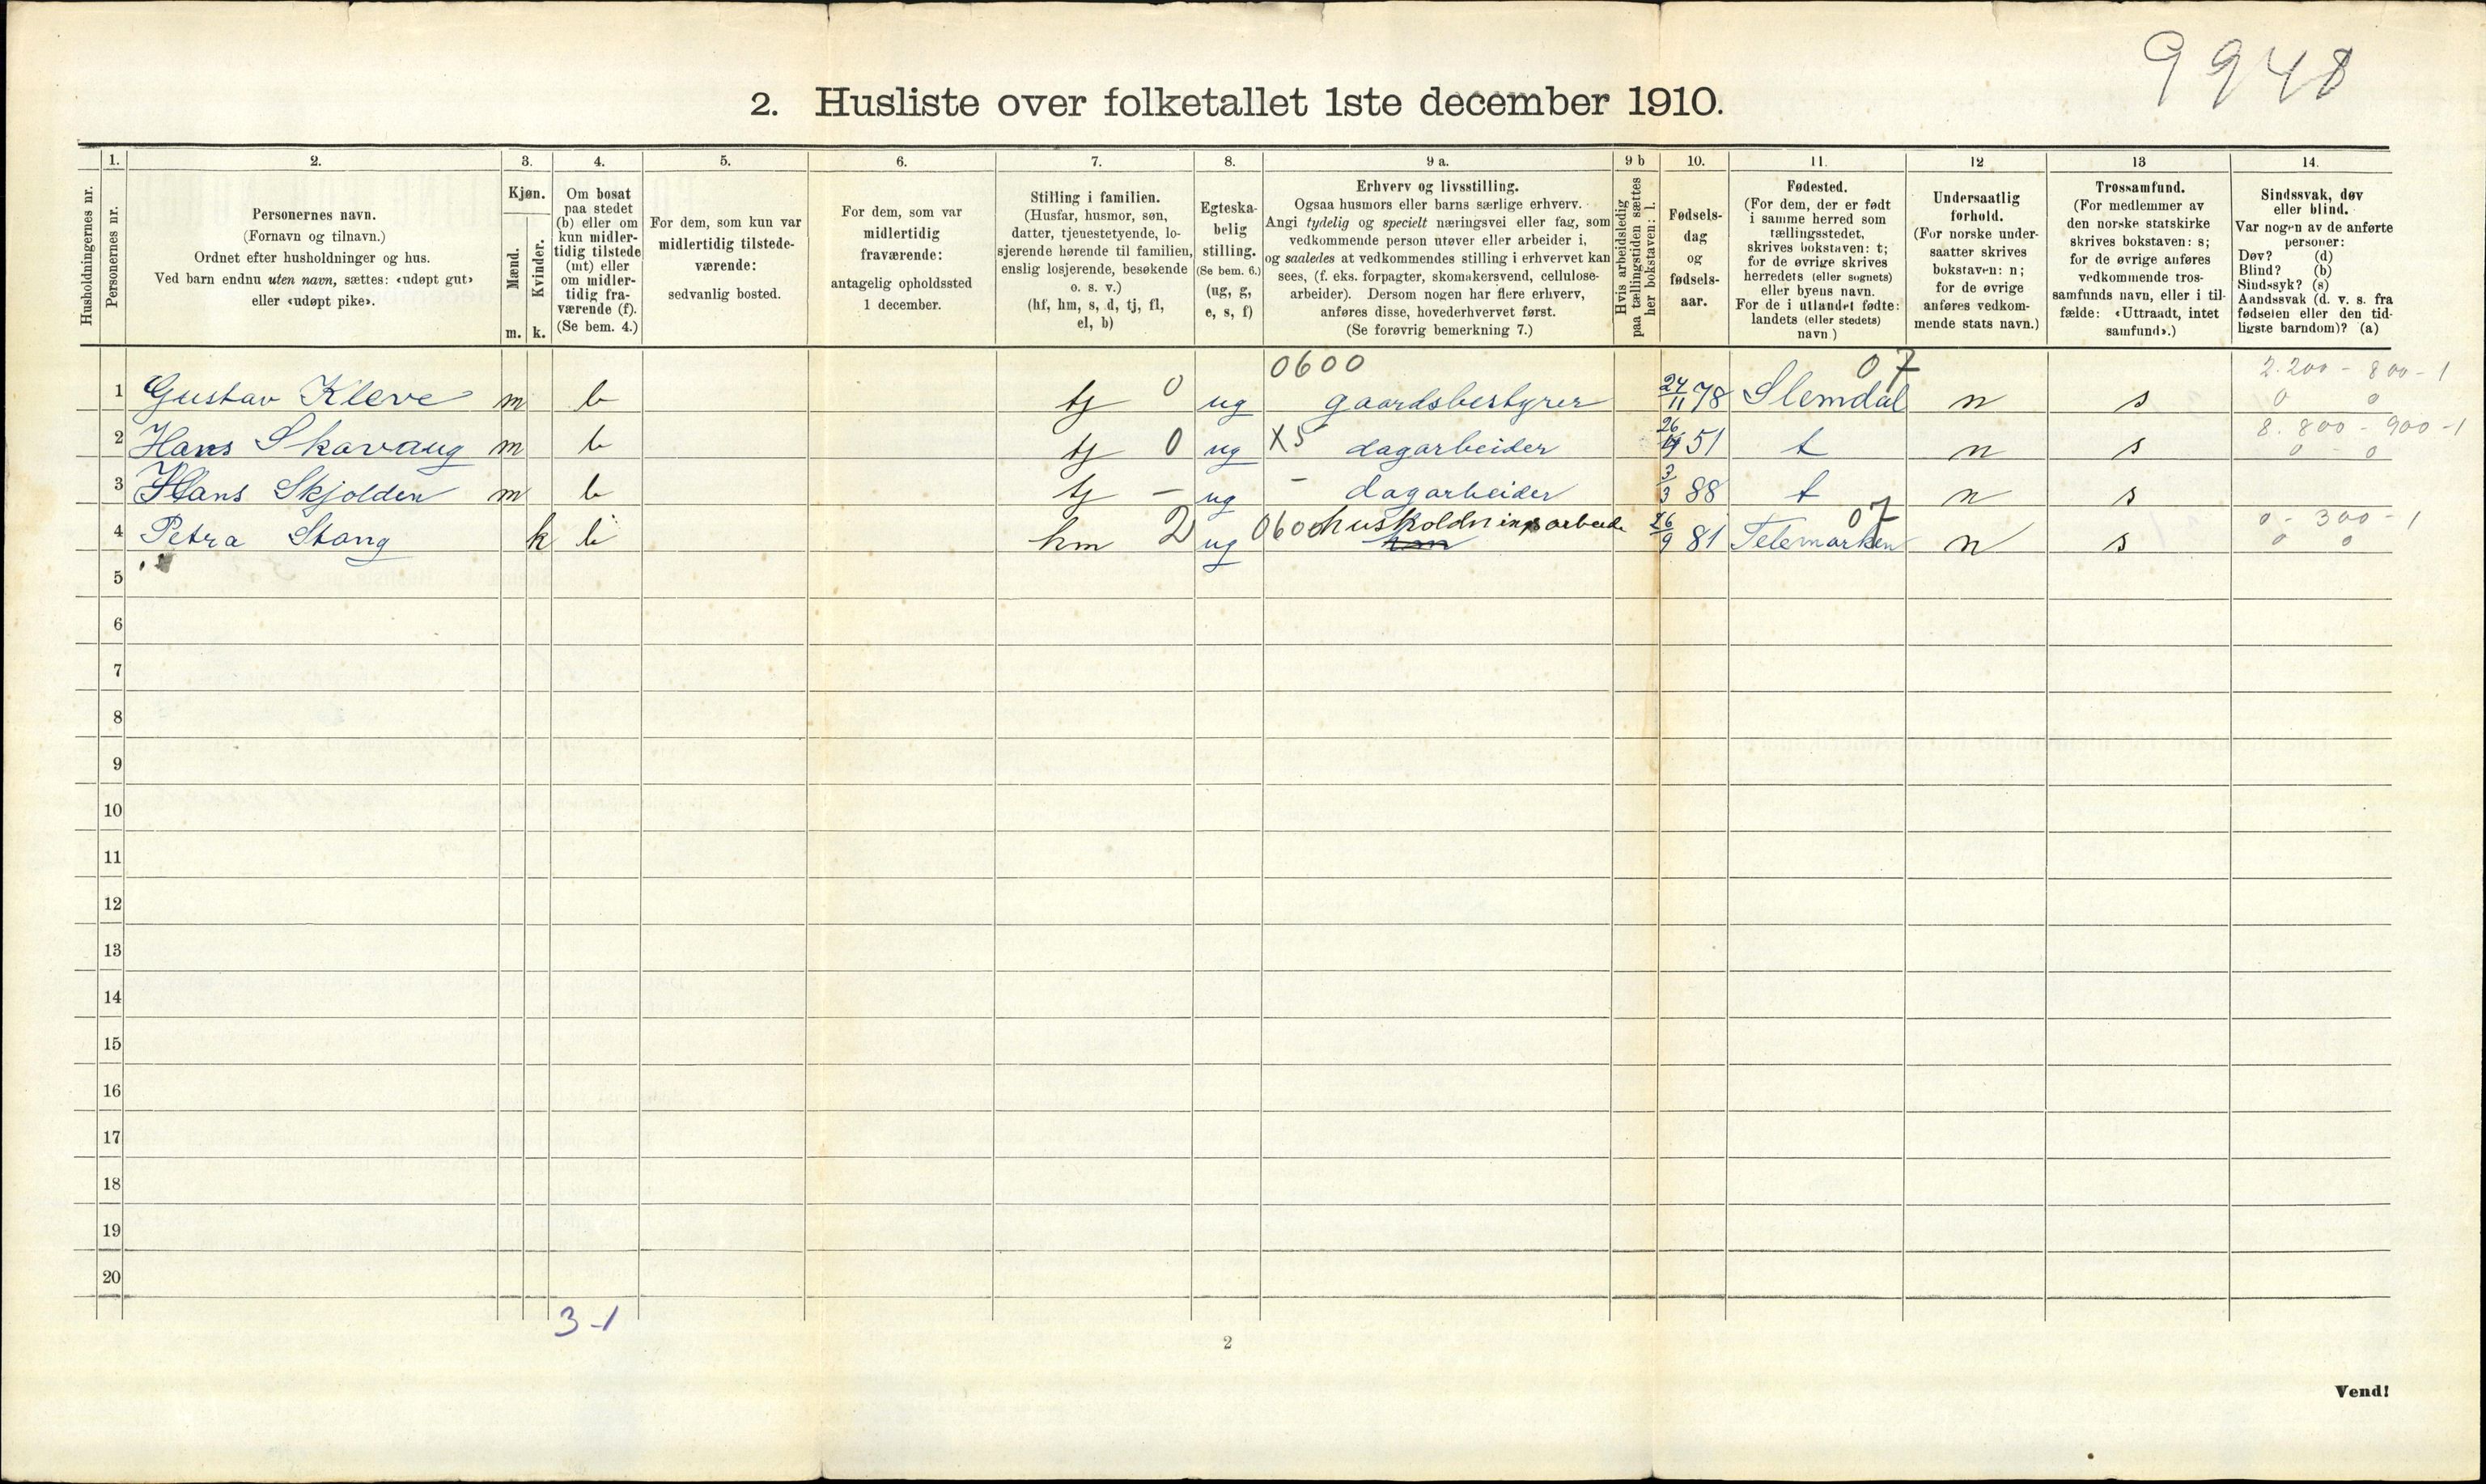 9948
2. Husliste over folketallet 1ste december 1910.
Husholdningernes nr.
1.
Personernes nr.
2.
Personernes navn.
(Fornavn og tilnavn.)
Ordnet efter husholdninger og hus.
Ved barn endnu uten navn, sættes: «udøpt gut»
eller «udøpt pike».
3.
Kjøn.
Mænd.
Kvinder.
m. k.
4.
Om bosat
paa stedet
(b) eller om
kun midler-
tidig tilstede
(mt) eller
om midler-
tidig fra-
værende (f).
(Se bem. 4.)
5.
For dem, som kun var
midlertidig tilstede-
værende:
sedvanlig bosted.
6.
For dem, som var
midlertidig
fraværende:
antagelig opholdssted
1 december.
7.
Stilling i familien.
(Husfar, husmor, søn,
datter, tjenestetyende, lo-
sjerende hørende til familien,
enslig losjerende, besøkende
o. s. v.)
(hf, hm, s, d, tj, fl,
el, b)
8.
Egteska-
belig
stilling.
(Se bem. 6.)
(ug, g,
e, s, f)
9 a.
Erhverv og livsstilling.
Ogsaa husmors eller barns særlige erhverv.
Angi tydelig og specielt næringsvei eller fag, som
vedkommende person utøver eller arbeider i,
og saaledes at vedkommendes stilling i erhvervet kan
sees, (f. eks. forpagter, skomakersvend, cellulose-
arbeider). Dersom nogen har flere erhverv,
anføres disse, hovederhvervet først.
(Se forøvrig bemerkning 7.)
9 b
Hvis arbeidsledig
paa tællingstiden sættes
her bokstaven: l.
10.
Fødsels-
dag
og
fødsels-
aar.
11.
Fødested.
(For dem, der er født
i samme herred som
tællingsstedet,
skrives bokstaven: t;
for de øvrige skrives
herredets (eller sognets)
eller byens navn.
For de i utlandet fødte:
landets (eller stedets)
navn.)
12
Undersaatlig
forhold.
(For norske under-
saatter skrives
bokstaven: n;
for de øvrige
anføres vedkom-
mende stats navn.)
13
Trossamfund.
(For medlemmer av
den norske statskirke
skrives bokstaven: s;
for de øvrige anføres
vedkommende tros-
samfunds navn, eller i til-
fælde: «Uttraadt, intet
samfund».)
14.
Sindssvak, døv
eller blind.
Var nogen av de anførte
personer:
Døv? (d)
Blind? (b)
Sindssyk? (s)
Aandssvak (d. v. s. fra
fødselen eller den tid-
ligste barndom)? (a)
0600 07 2.200 - 800 - 1
1 Gustav Kleve m b tj 0 ug gaardsbestyrer 24/11 78 Slemdal n s 0 0
8. 800 - 900 - 1
2 Hans Skavaug m b tj 0 ug X5 dagarbeider 51 t n s 0 - 0
3 Hans Skjolden m b tj - ug - dagarbeider 3/3 88 t n s
0600 husholdningsarbeide 07 0 - 300 - 1
4 Petra Stang k b hm 2 ug 26/9 81 Telemarken n s 0 0
5
6
7
8
9
10
11
12
13
14
15
16
17
18
19
20
3-1
2
Vend!